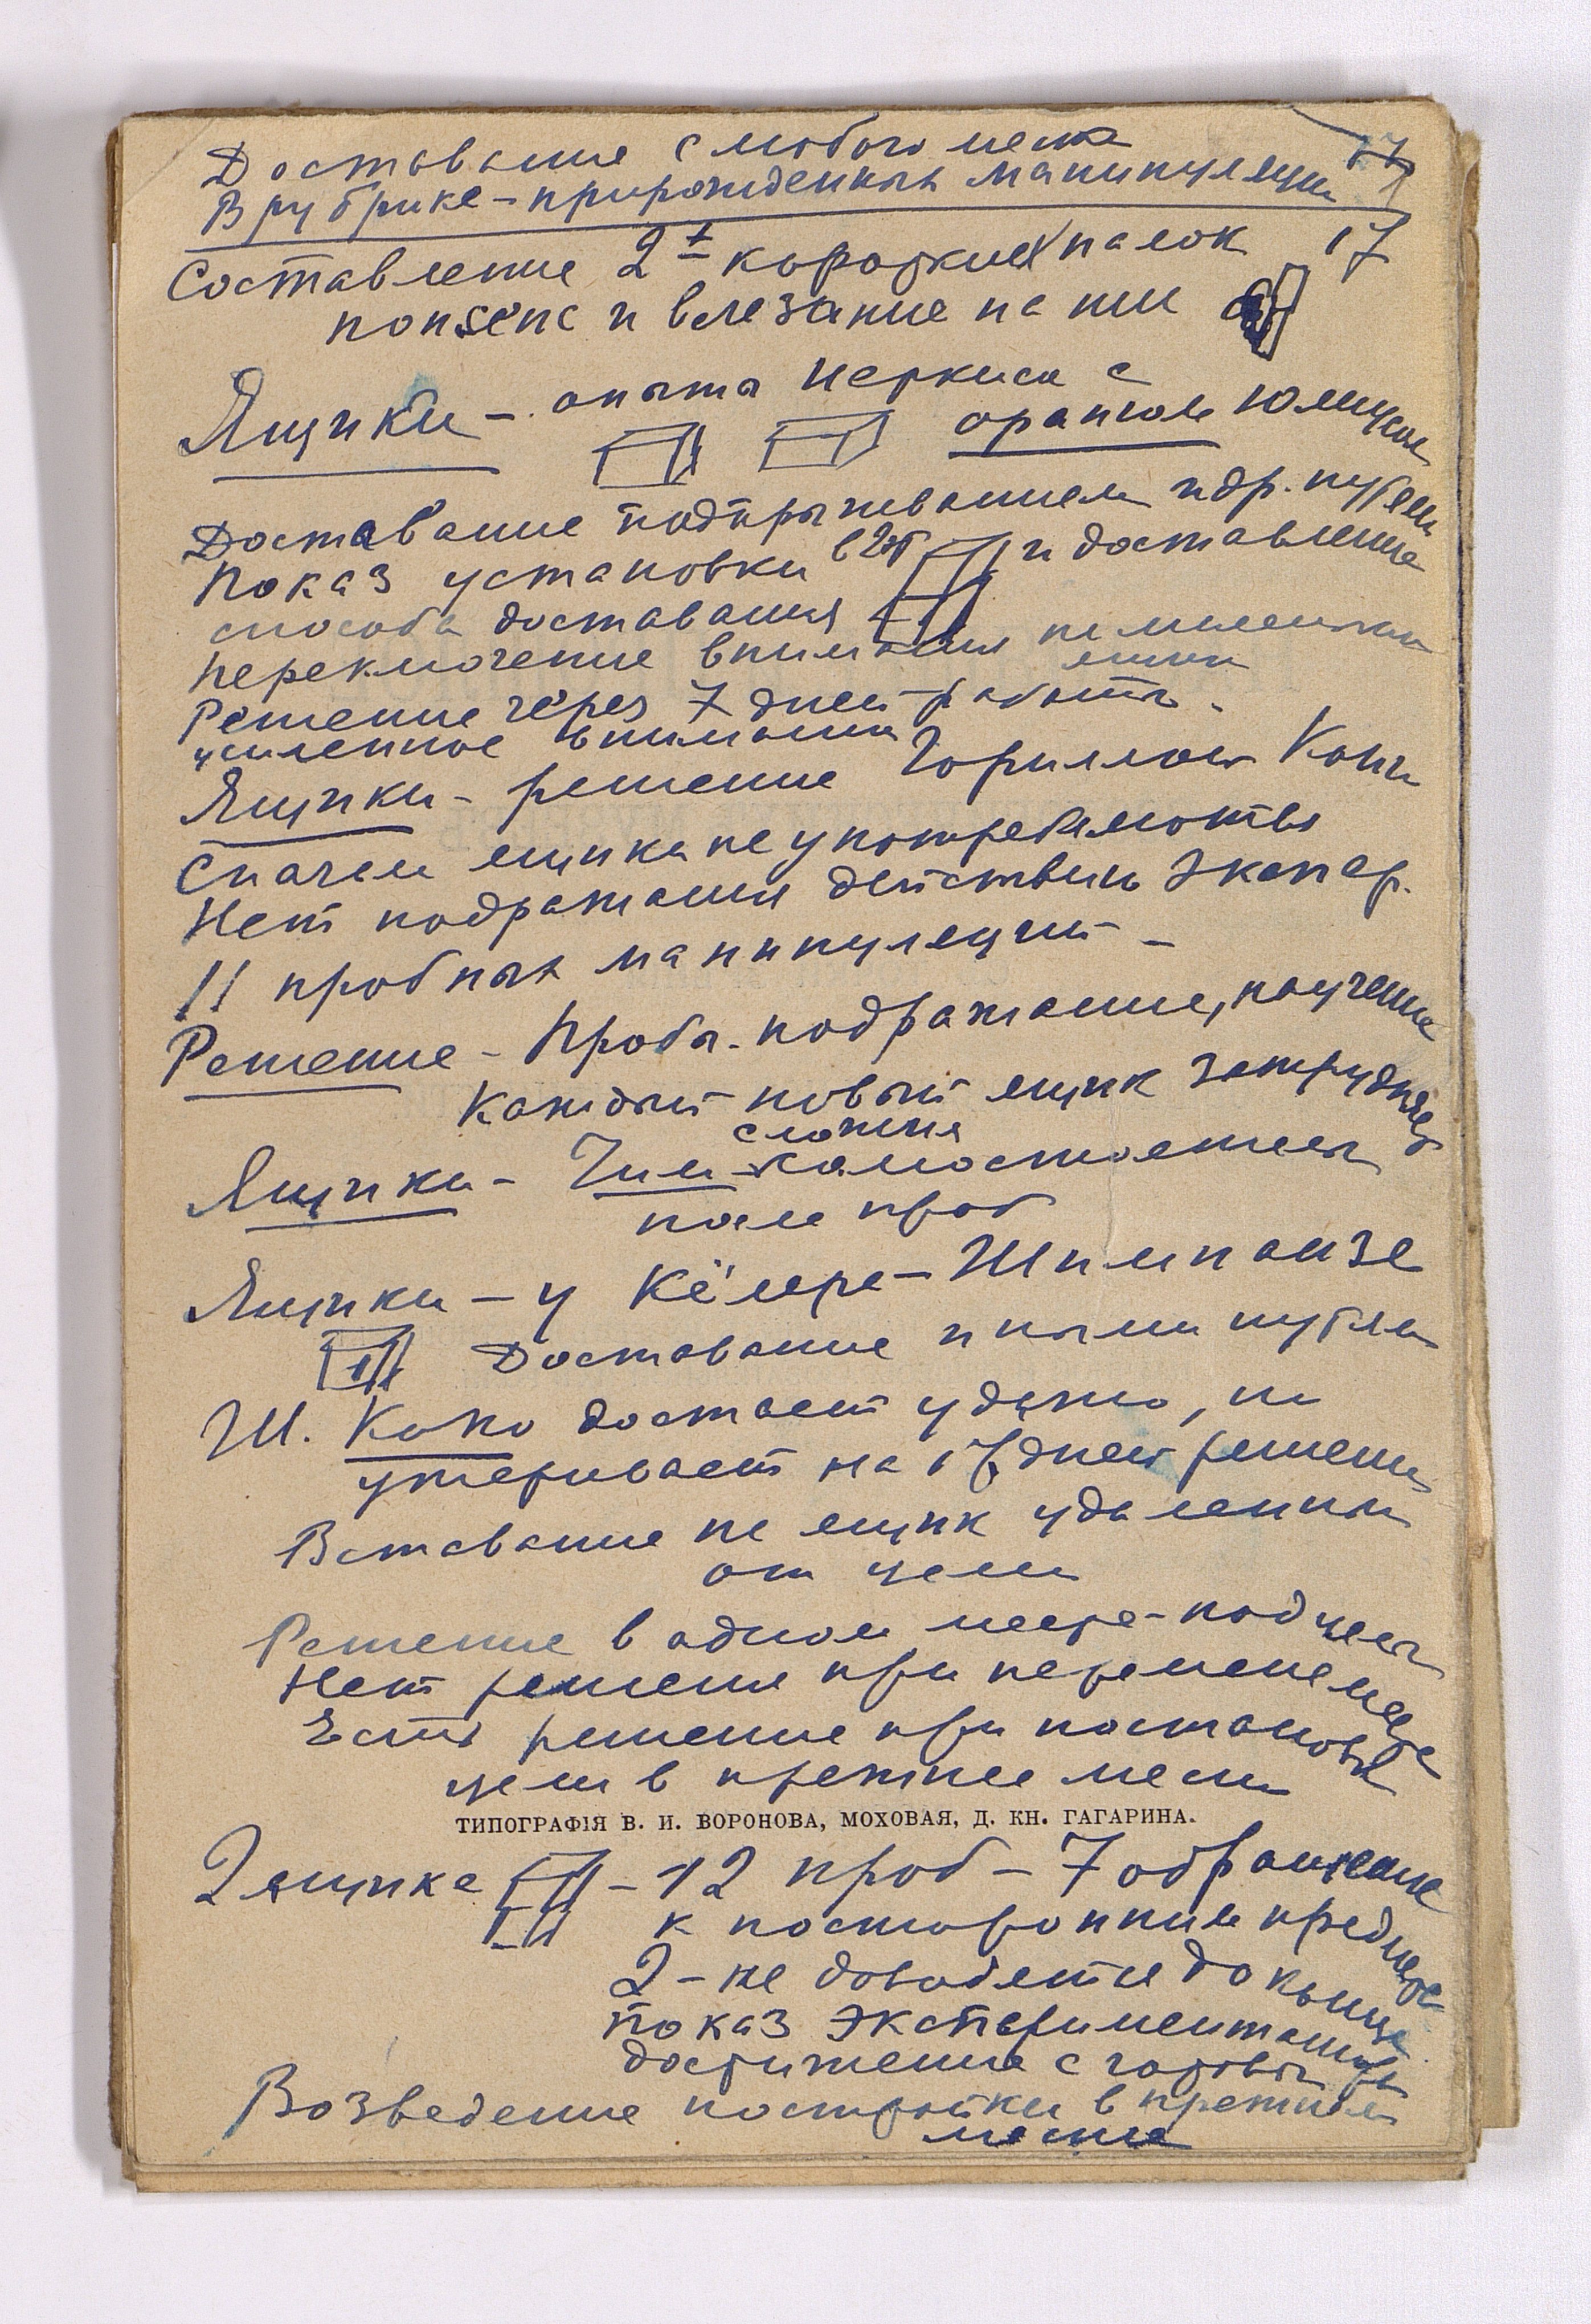 Доставание с любого места
В рубрике – прирожденных манипуляции
17
Составление 2х коротких палок 17
поперек и влезание на них
Ящики – опыты Иеркиса с
орангом Юлиусом
Доставание подпрыгиванием и др. путем
Показ установки в 2х и доставление
способа доставания
переключение внимания
Решение через 7 дней работы.
усиленное внимание
Ящики – решение Гориллой Конго
Сначала ящики не употребляются
Нет подражания действиям экспер.
11 пробных манипуляций –
Решение – Пробы. подражание, научение
Каждый новый ящик затрудняет
Ящики – Чим самостоятельн
после проб
Ящики – у Кёлера – Шимпанзе
Доставание иными путями
Ш. Коко достает удачно, но
утеривает на 17 дней решение
Вставание на ящик удаленный
от цели
Решение в одном месте – под целью
Нет решения при перемене места
Есть решение при постановке
цели в прежнее место
ТИПОГРАФІЯ В. И. ВОРОНОВА, МОХОВАЯ, Д. КН. ГАГАРИНА.
2 ящика – 12 проб – 7 обращение
к посторонним предметам
2 – не доводятся до конца
показ экспериментатора
достижение с
Возведение постройки в прежнем
месте